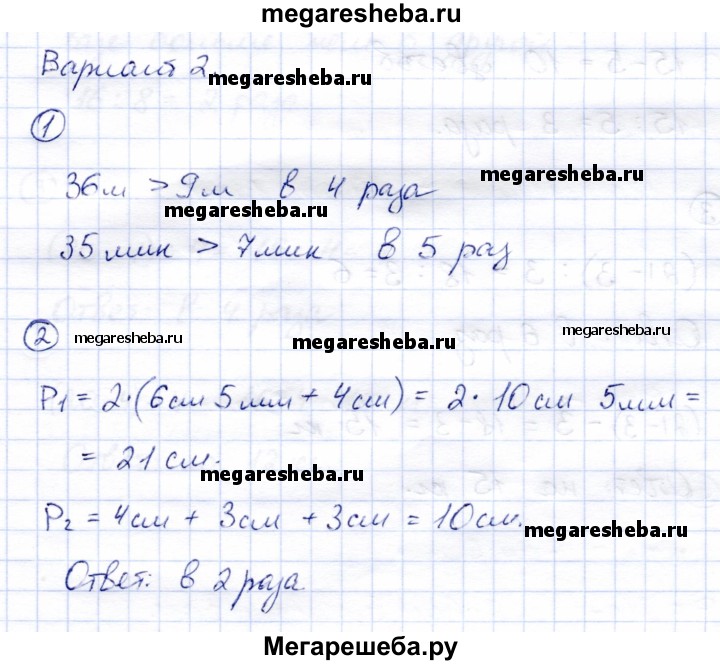 megaresheba.ru
Вариант 2.
megaresheba.ru
①
36м > 9м в 4 раза
megaresheba.ru
megaresheba.ru
35мин > 7мин в 5 раз
②
megaresheba.ru
megaresheba.ru
megaresheba.ru
P₁ = 2·(6см 5мм + 4см) = 2·10см 5мм =
= 21 см.
megaresheba.ru
P₂ = 4см + 3см + 3см = 10см.
megaresheba.ru
Ответ: в 2 раза
Мегарешеба.ру